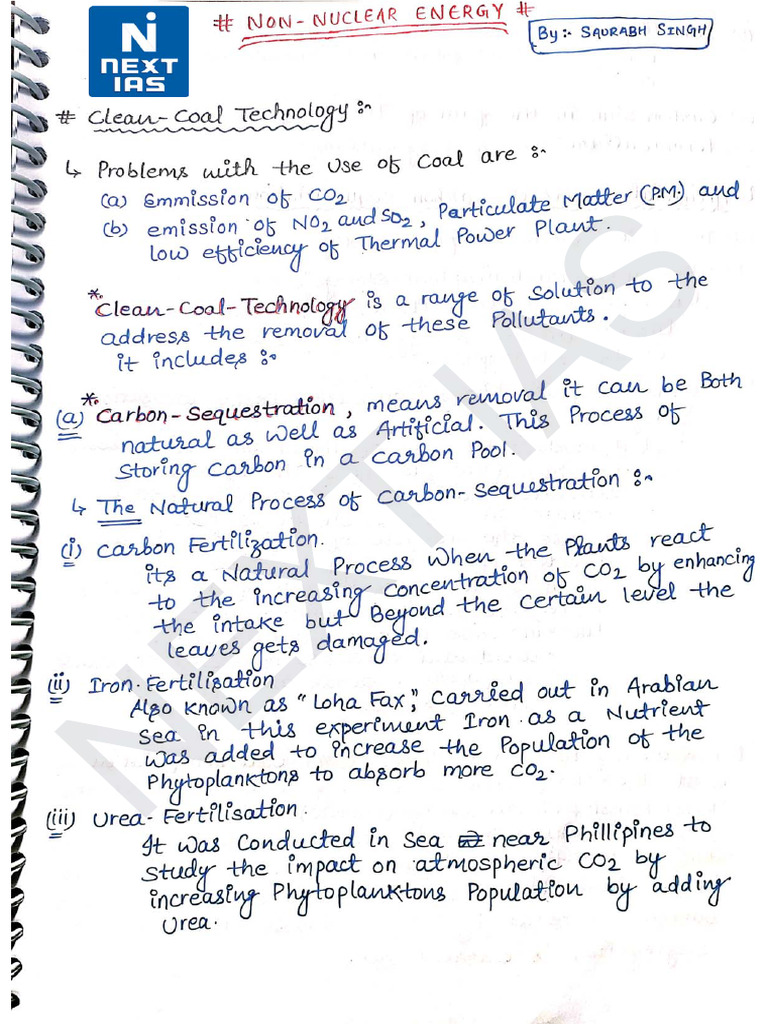 # NON-NUCLEAR ENERGY #
NEXT
IAS
By:- SAURABH SINGH
# Clean-Coal Technology :-
↳ Problems with the Use of Coal are :-
(a) Emmission of CO2
(b) emission of NO2 and SO2, Particulate Matter (P.M.) and
low efficiency of Thermal Power Plant.
*Clean-Coal-Technology is a range of Solution to the
address the removal of these Pollutants.
it includes :-
(a) *Carbon-Sequestration, means removal it can be Both
natural as well as Artificial. This Process of
Storing Carbon in a Carbon Pool.
↳ The Natural Process of Carbon-Sequestration :-
(i) Carbon Fertilization.
its a Natural Process When the Plants react
to the increasing Concentration of CO2 by enhancing
the intake but Beyond the Certain level the
leaves gets damaged.
(ii) Iron-Fertilisation
Also known as "Loha Fax," Carried out in Arabian
Sea in this experiment Iron as a Nutrient
was added to increase the Population of the
Phytoplanktons to absorb more CO2.
(iii) Urea-Fertilisation.
It was Conducted in Sea near Phillipines to
Study the impact on atmospheric CO2 by
increasing Phytoplanktons Population by adding
Urea.
NEXT IAS